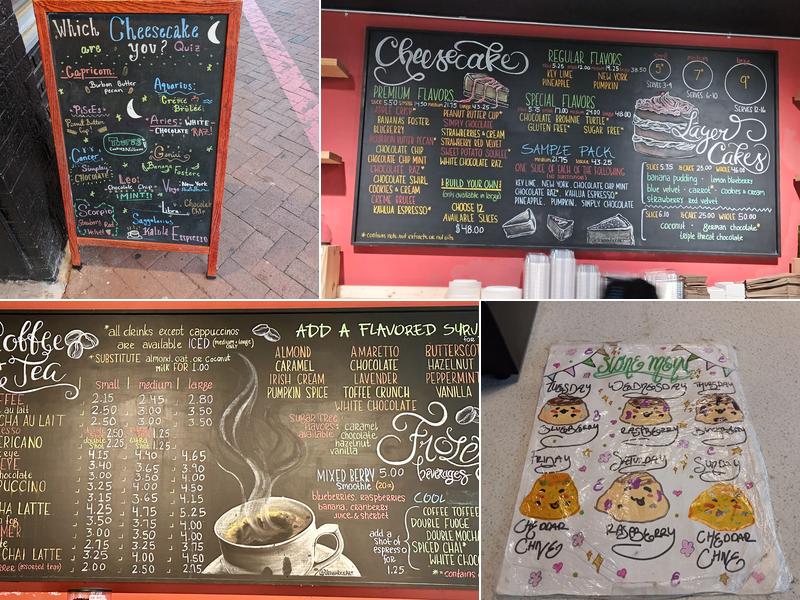 Which Cheesecake
are you? Quiz
Capricorn:
Bourbon Butter
pecan
Aquarius:
Créme
Brûleé
PISCES
Peanut Butter
Cup!
Aries: WHITE
CHOCOLATE RAZ!
Cancer
Simply
CHOCOLATE!
Gemini
Bananas Fosters
Leo:
Chocolate Chip
MINT!!
Virgo
New York
Libra
Chocolate
Chip
Scorpio
Strawberry Red
Velvet
Sagittarius
Kahlúa Espresso
Cheesecake
PREMIUM FLAVORS
SLICE 5.50 SMALL 14.50 MEDIUM 21.75 LARGE 43.25
APPLE CRISP
BANANAS FOSTER
BLUEBERRY
BOURBON BUTTER PECAN*
CHOCOLATE CHIP
CHOCOLATE CHIP MINT
CHOCOLATE RAZ*
CHOCOLATE SWIRL
COOKIES & CREAM
CREME BRULEE
KAHLUA ESPRESSO*
PEANUT BUTTER CUP*
SIMPLY CHOCOLATE
STRAWBERRIES & CREAM
STRAWBERRY RED VELVET
SWEET POTATO SOUFLEE*
WHITE CHOCOLATE RAZ
BUILD YOUR OWN!
(only available in large)
CHOOSE 12
AVAILABLE SLICES
$48.00
*contains nuts, nut extracts, or nut oils
REGULAR FLAVORS
5.25 12.00 19.25 38.50
KEY LIME NEW YORK
PINEAPPLE PUMPKIN
SPECIAL FLAVORS
5.75 17.00 24.00 48.00
CHOCOLATE BROWNIE TURTLE*
GLUTEN FREE* SUGAR FREE*
SAMPLE PACK
medium 21.75 large 43.25
ONE SLICE OF EACH OF THE FOLLOWING
(NO SUBSTITUTIONS)
KEY LIME, NEW YORK, CHOCOLATE CHIP MINT
CHOCOLATE RAZ*, KAHLUA ESPRESSO*
PINEAPPLE, PUMPKIN, SIMPLY CHOCOLATE
5" 7" 9"
SERVES 3-4 SERVES 6-10 SERVES 12-16
Layer
Cakes
SLICE 5.75 ½ CAKE 25.00 WHOLE 46.00
banana pudding • lemon blueberry
blue velvet • carrot* • cookies & cream
strawberry red velvet
SLICE 6.10 ½ CAKE 25.00 WHOLE 50.00
coconut • german chocolate*
triple threat chocolate
Coffee
& Tea
*all drinks except cappuccinos
are available ICED (medium + large
ONLY)
*SUBSTITUTE almond, oat, or coconut
milk FOR 1.00
small medium large
FFEE 2.15 2.45 2.80
au lait 2.50 3.00 3.50
CHA AU LAIT 2.50 3.00 3.50
double 2.25 1.25
ERICANO
EYE 4.15 4.40 4.65
EYE 3.40 3.65 3.90
hocolate 3.00 3.50 4.00
PUCCINO 3.25 3.75 4.25
3.15 3.65 4.15
CHAI LATTE 4.00 4.25 4.50
3.25 3.75 4.00
MER 2.50 2.75 3.00
3.25 3.50 3.75
CHAI LATTE 3.25 3.75 4.25
(assorted teas) 2.00 2.25 2.50
ADD A FLAVORED SYRU
ALMOND AMARETTO BUTTERSCOT
CARAMEL CHOCOLATE HAZELNUT
IRISH CREAM LAVENDER PEPPERMINT
PUMPKIN SPICE TOFFEE CRUNCH VANILLA
WHITE CHOCOLATE
SUGAR FREE
FLAVORS
available
caramel
chocolate
hazelnut
vanilla
Froze
beverages
MIXED BERRY 5.00
Smoothie (20oz)
blueberries, raspberries
banana, cranberry
juice & sherbet
add a
shot of
espresso
for
1.25
COOL
COFFEE TOFFEE
DOUBLE FUDGE
DOUBLE MOCHA
SPICED CHAI*
WHITE CHOC
*contains
SCONE MENU
TUESDAY WEDNESDAY THURSDAY
BLUEBERRY RASPBERRY
FRIDAY SATURDAY SUNDAY
CHEDDAR
CHIVE
RASPBERRY
CHEDDAR
CHIVE